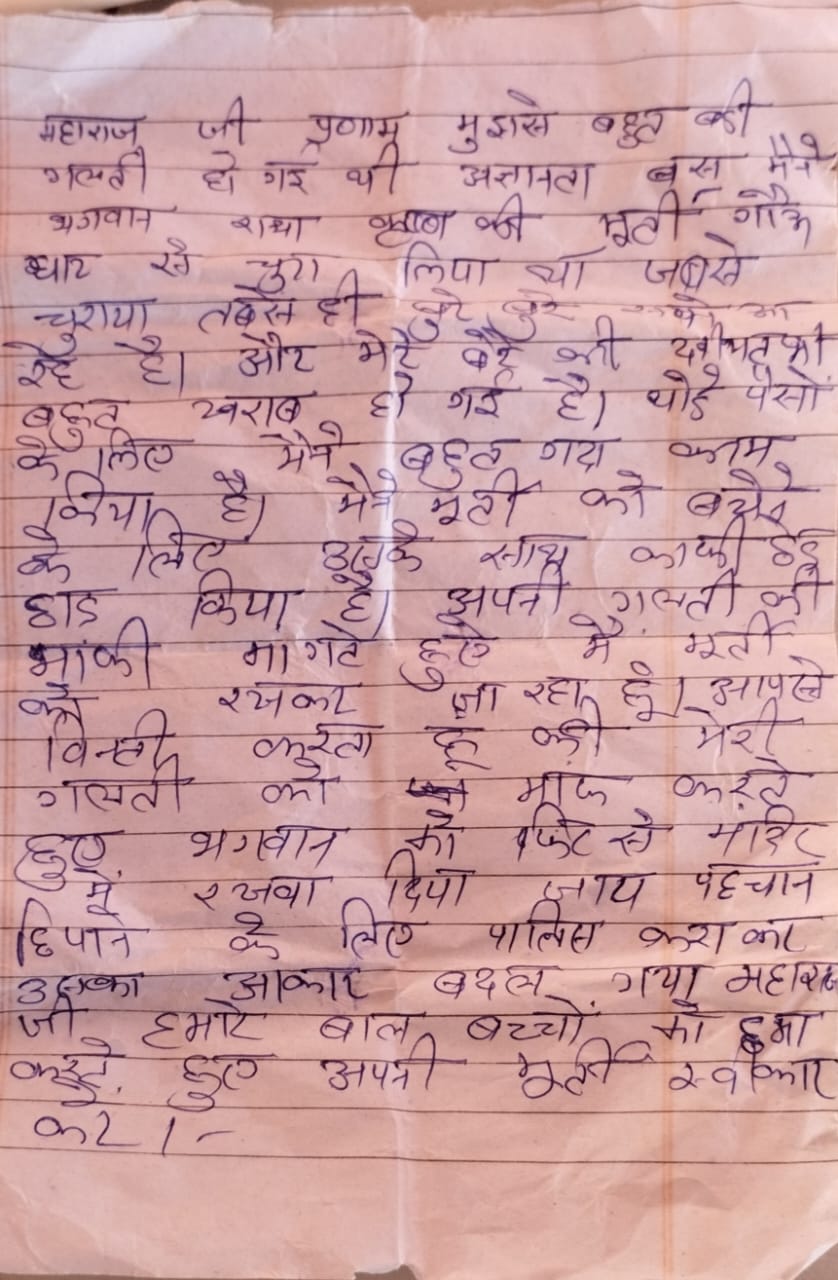 महाराज जी प्रणाम मुझसे बहुत बडी
गलती हो गई थी अज्ञानता बस मैने
भगवान राधा कृष्ण की मूर्ती गौऊ
घाट से चुरा लिया था जबसे
चुराया तबसे ही बुरे बुरे
रहे है। और मेरे बेटे की तबीयत भी
बहुत खराब हो गई है। थोडे पैसो
के लिए मैने बहुत गंदा काम
किया है। मैने मूर्ती को बेचने
के लिए उसके साथ काफी छेड़
छाड किया है। अपनी गलती की
माफी मांगते हुऐ मै मूर्ती
को रखकर जा रहा हूं। आपसे
विन्ती करता हू की मेरी
गलती को माफ करते
हुए भगवान को फिर से मंदिर
में रखवा दिया जाय पहचान
छिपाने के लिए पालिस कराकर
उसका आकार बदल गया महाराज
जी हमारे बाल बच्चों को क्षमा
करते हुए अपनी मूर्ती स्वीकार
करे।-